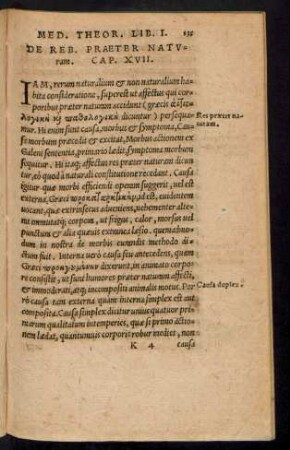 MED. THEOR. LIB. I.
DE REB. PRAETER NATV-
ram. CAP. XVII.
IAM, rerum naturalium & non naturalium ha-
bita consideratione, superest ut affectus qui cor-
poribus præter naturam accidunt (græcis
λογικὴ καὶ παθολογικὴ dicuntur) persequa-
mur. Hi enim sunt causa, morbus & symptoma. Cau-
sa morbum præcedit & excitat, Morbus actionem ex
Galeni sententia, primario lædit, symptoma morbum
sequitur. Hi itaq; affectus res præter naturam dicun-
tur, eò quod à naturali constitutione recedant. Causa
igitur quæ morbi efficiendi opem suggerit, vel est
externa, Græci προκαταρκτικὴν, id est, evidentem
vocant, quæ extrinsecus adveniens, vehementer alte-
rat immutatq; corpus, ut frigus, calor, morsus vel
punctum & alia quævis extimus læsio. quemadmo-
dum in nostra de morbis curandis methodo di-
ctum fuit. Interna verò causa seu antecedens, quam
Græci προηγουμένην dixerunt, in animato corpo-
re consistit, ut sunt humores præter naturam affecti,
& immoderati, atq; incompositi animalis motus. Por-
rò causa tam externa quam interna simplex est aut
composita. Causa simplex dicitur uniuscuiusque pri-
marum qualitatum intemperies, quæ si primò actio-
nem lædat, quantumvis corpori robur insidet, non
K 4 causa
Res præter na-
turam.
Causa duplex.